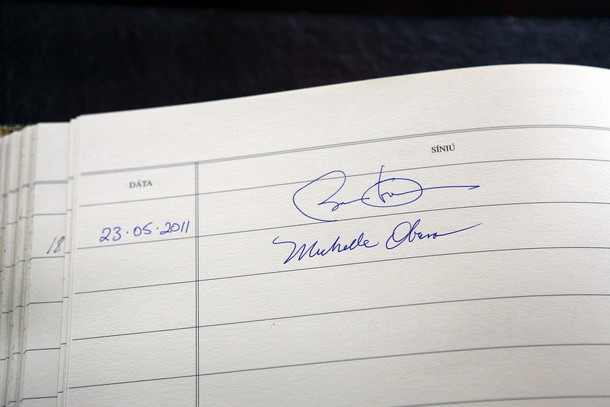 DÁTA SÍNIÚ
23·05·2011
Michelle Obama
18